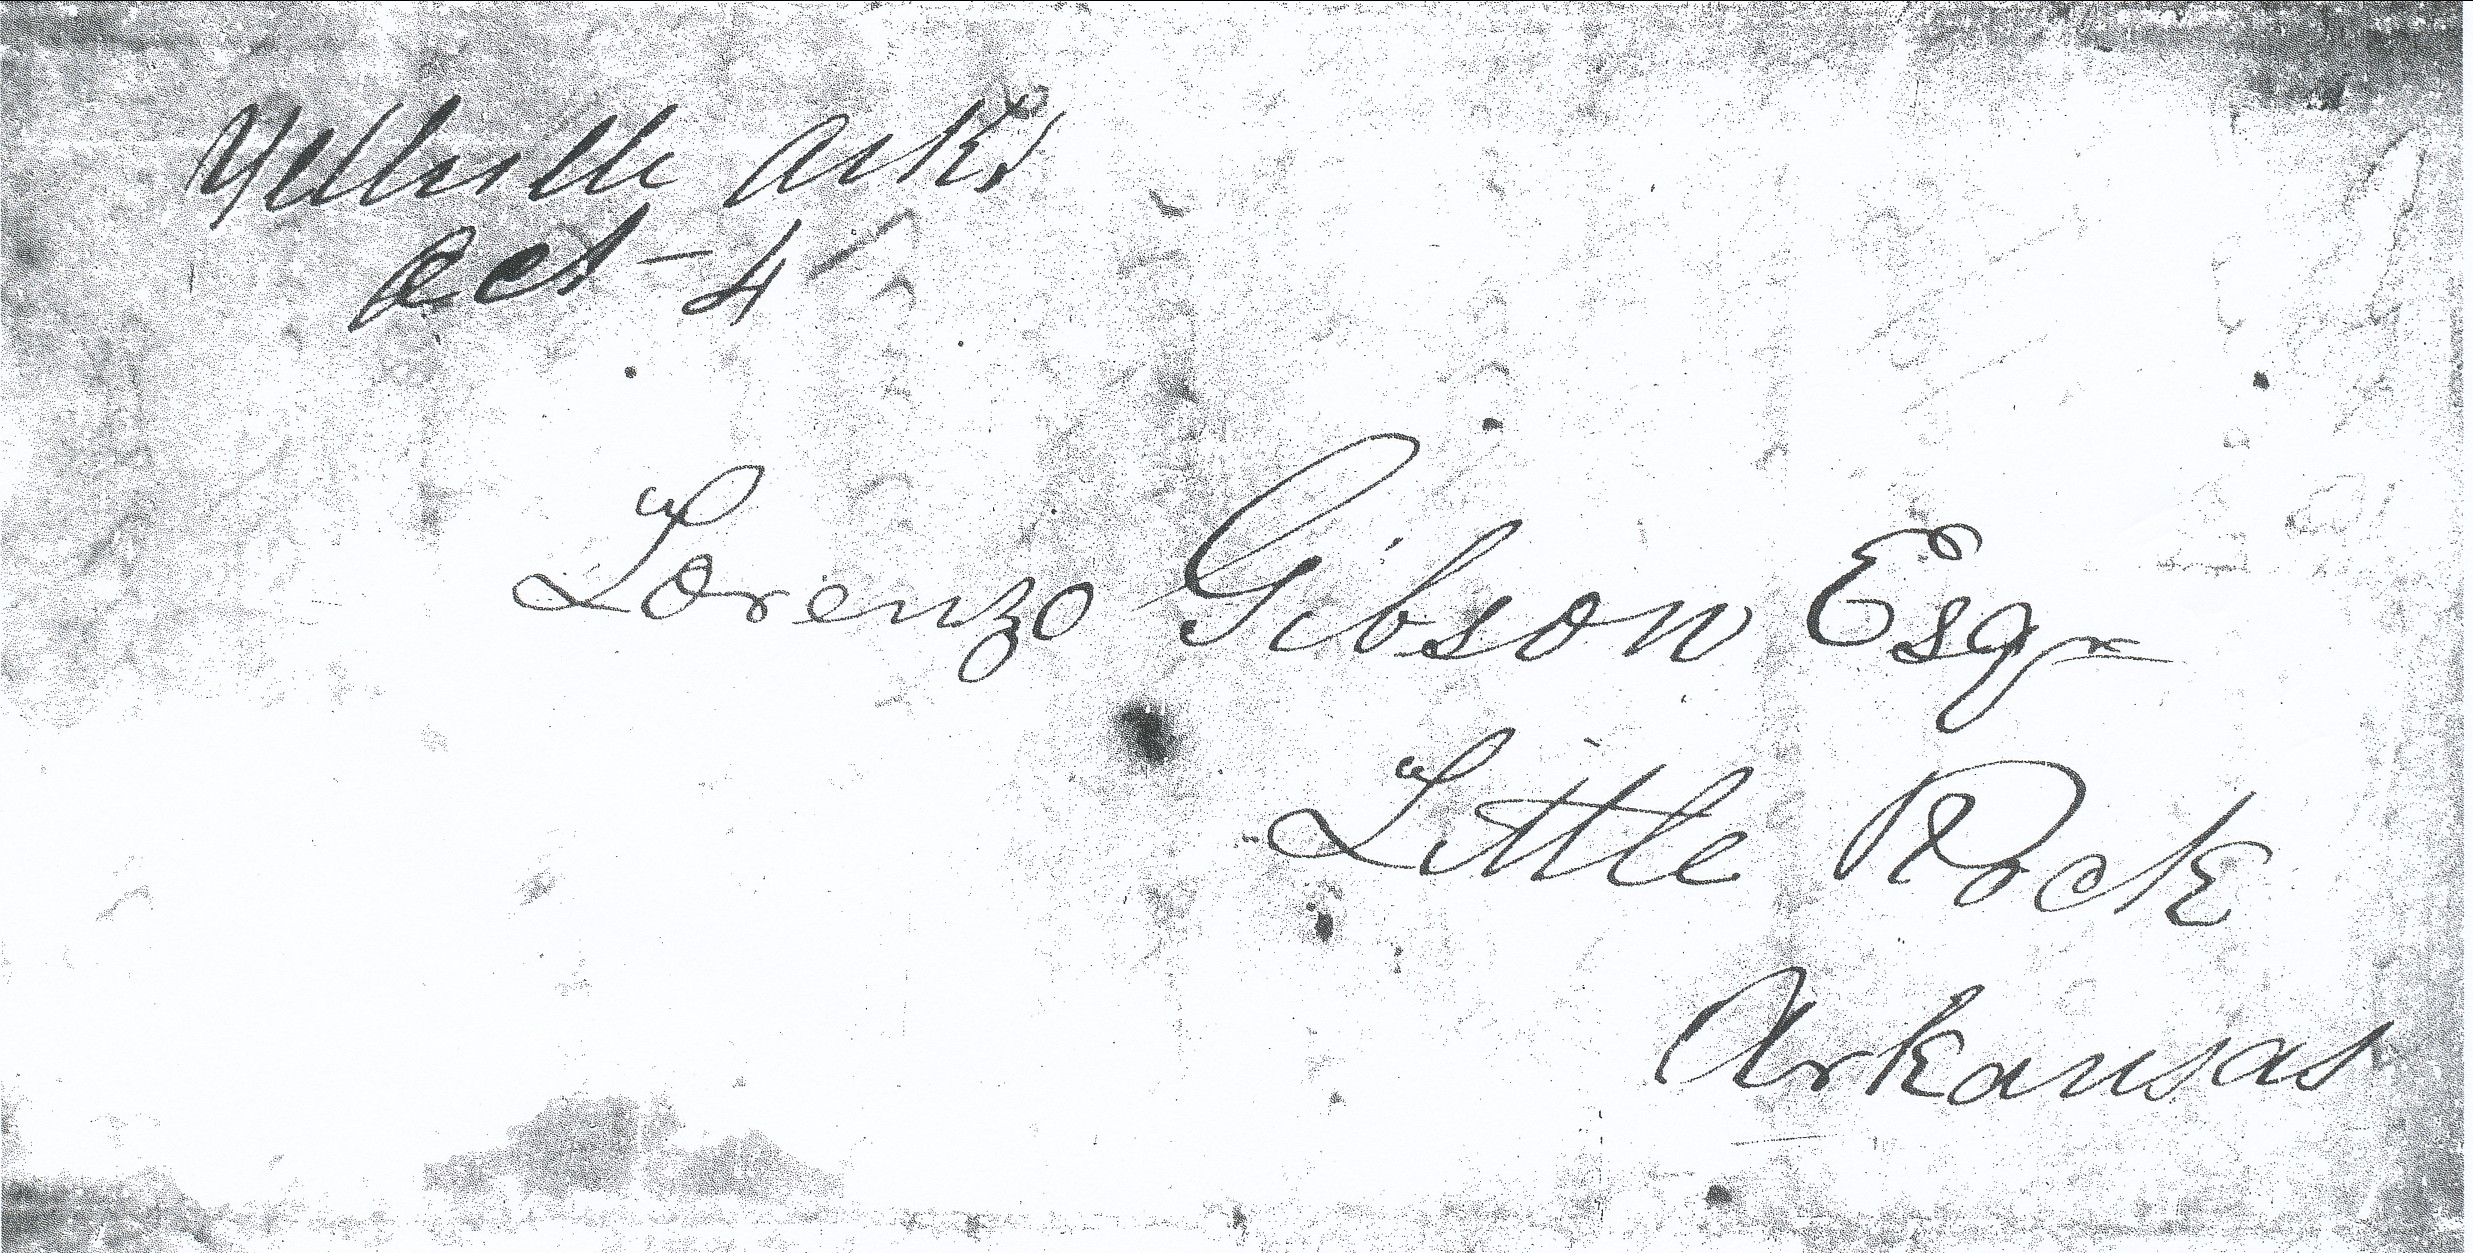 Yellville Arks
Oct - 4
Lorenzo Gibson Esqr
Little Rock
Arkansas